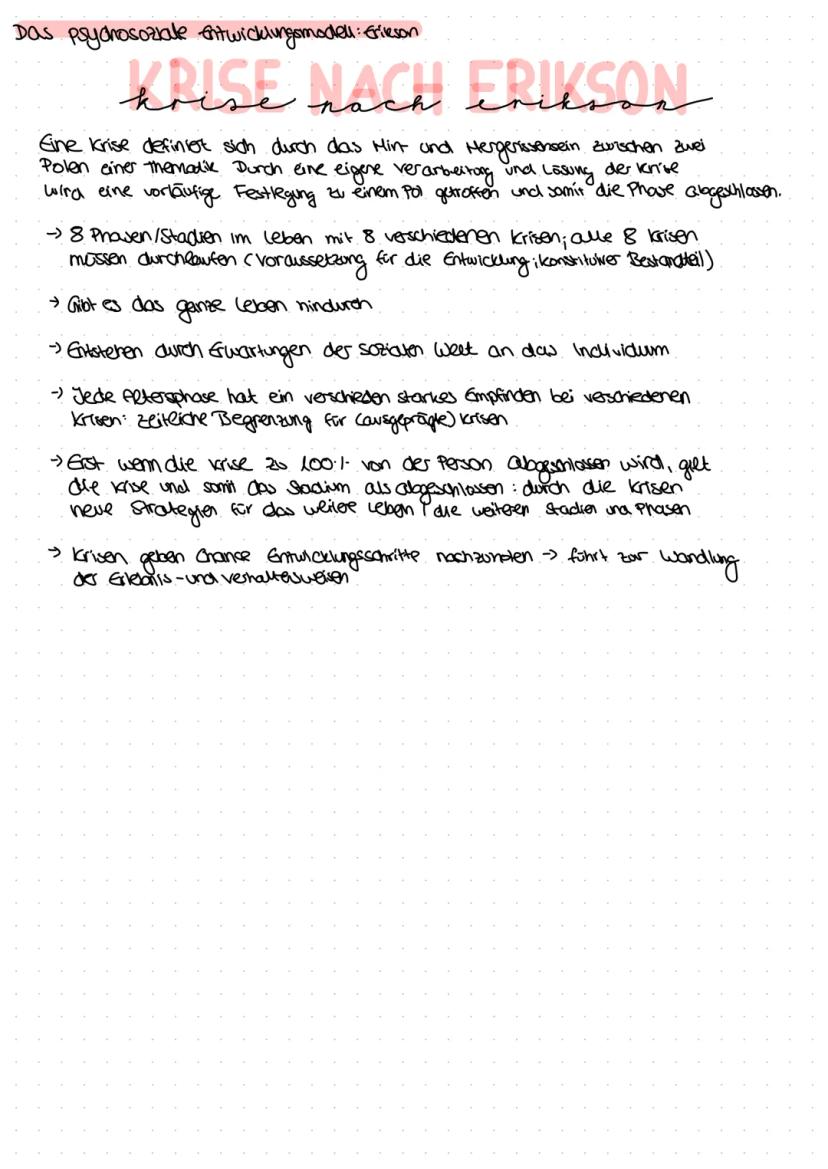 Das psychosoziale Entwicklungsmodell: Erikson
KRISE NACH ERIKSON
krise nach erikson
Eine Krise definiert sich durch das Hin- und Hergerissensein zwischen zwei
Polen einer Thematik. Durch eine eigene Verarbeitung und Lösung der Krise
wird eine vorläufige Festlegung zu einem Pol getroffen und somit die Phase abgeschlossen.
→ 8 Phasen/Stadien im Leben mit 8 verschiedenen Krisen; alle 8 Krisen
müssen durchlaufen (Voraussetzung für die Entwicklung; konstitutiver Bestandteil)
→ Gibt es das ganze Leben hindurch
→ Entstehen durch Erwartungen der sozialen Welt an das Individuum
→ Jede Altersphase hat ein verschieden starkes Empfinden bei verschiedenen
Krisen: zeitliche Begrenzung für (ausgeprägte) Krisen
→ Erst wenn die Krise zu 100% von der Person abgeschlossen wird, gilt
die Krise und somit das Stadium als abgeschlossen: durch die Krisen
neue Strategien für das weitere Leben / die weiteren Stadien und Phasen
→ Krisen geben Chance Entwicklungsschritte nachzuholen → führt zur Wandlung
der Erlebnis- und Verhaltensweisen